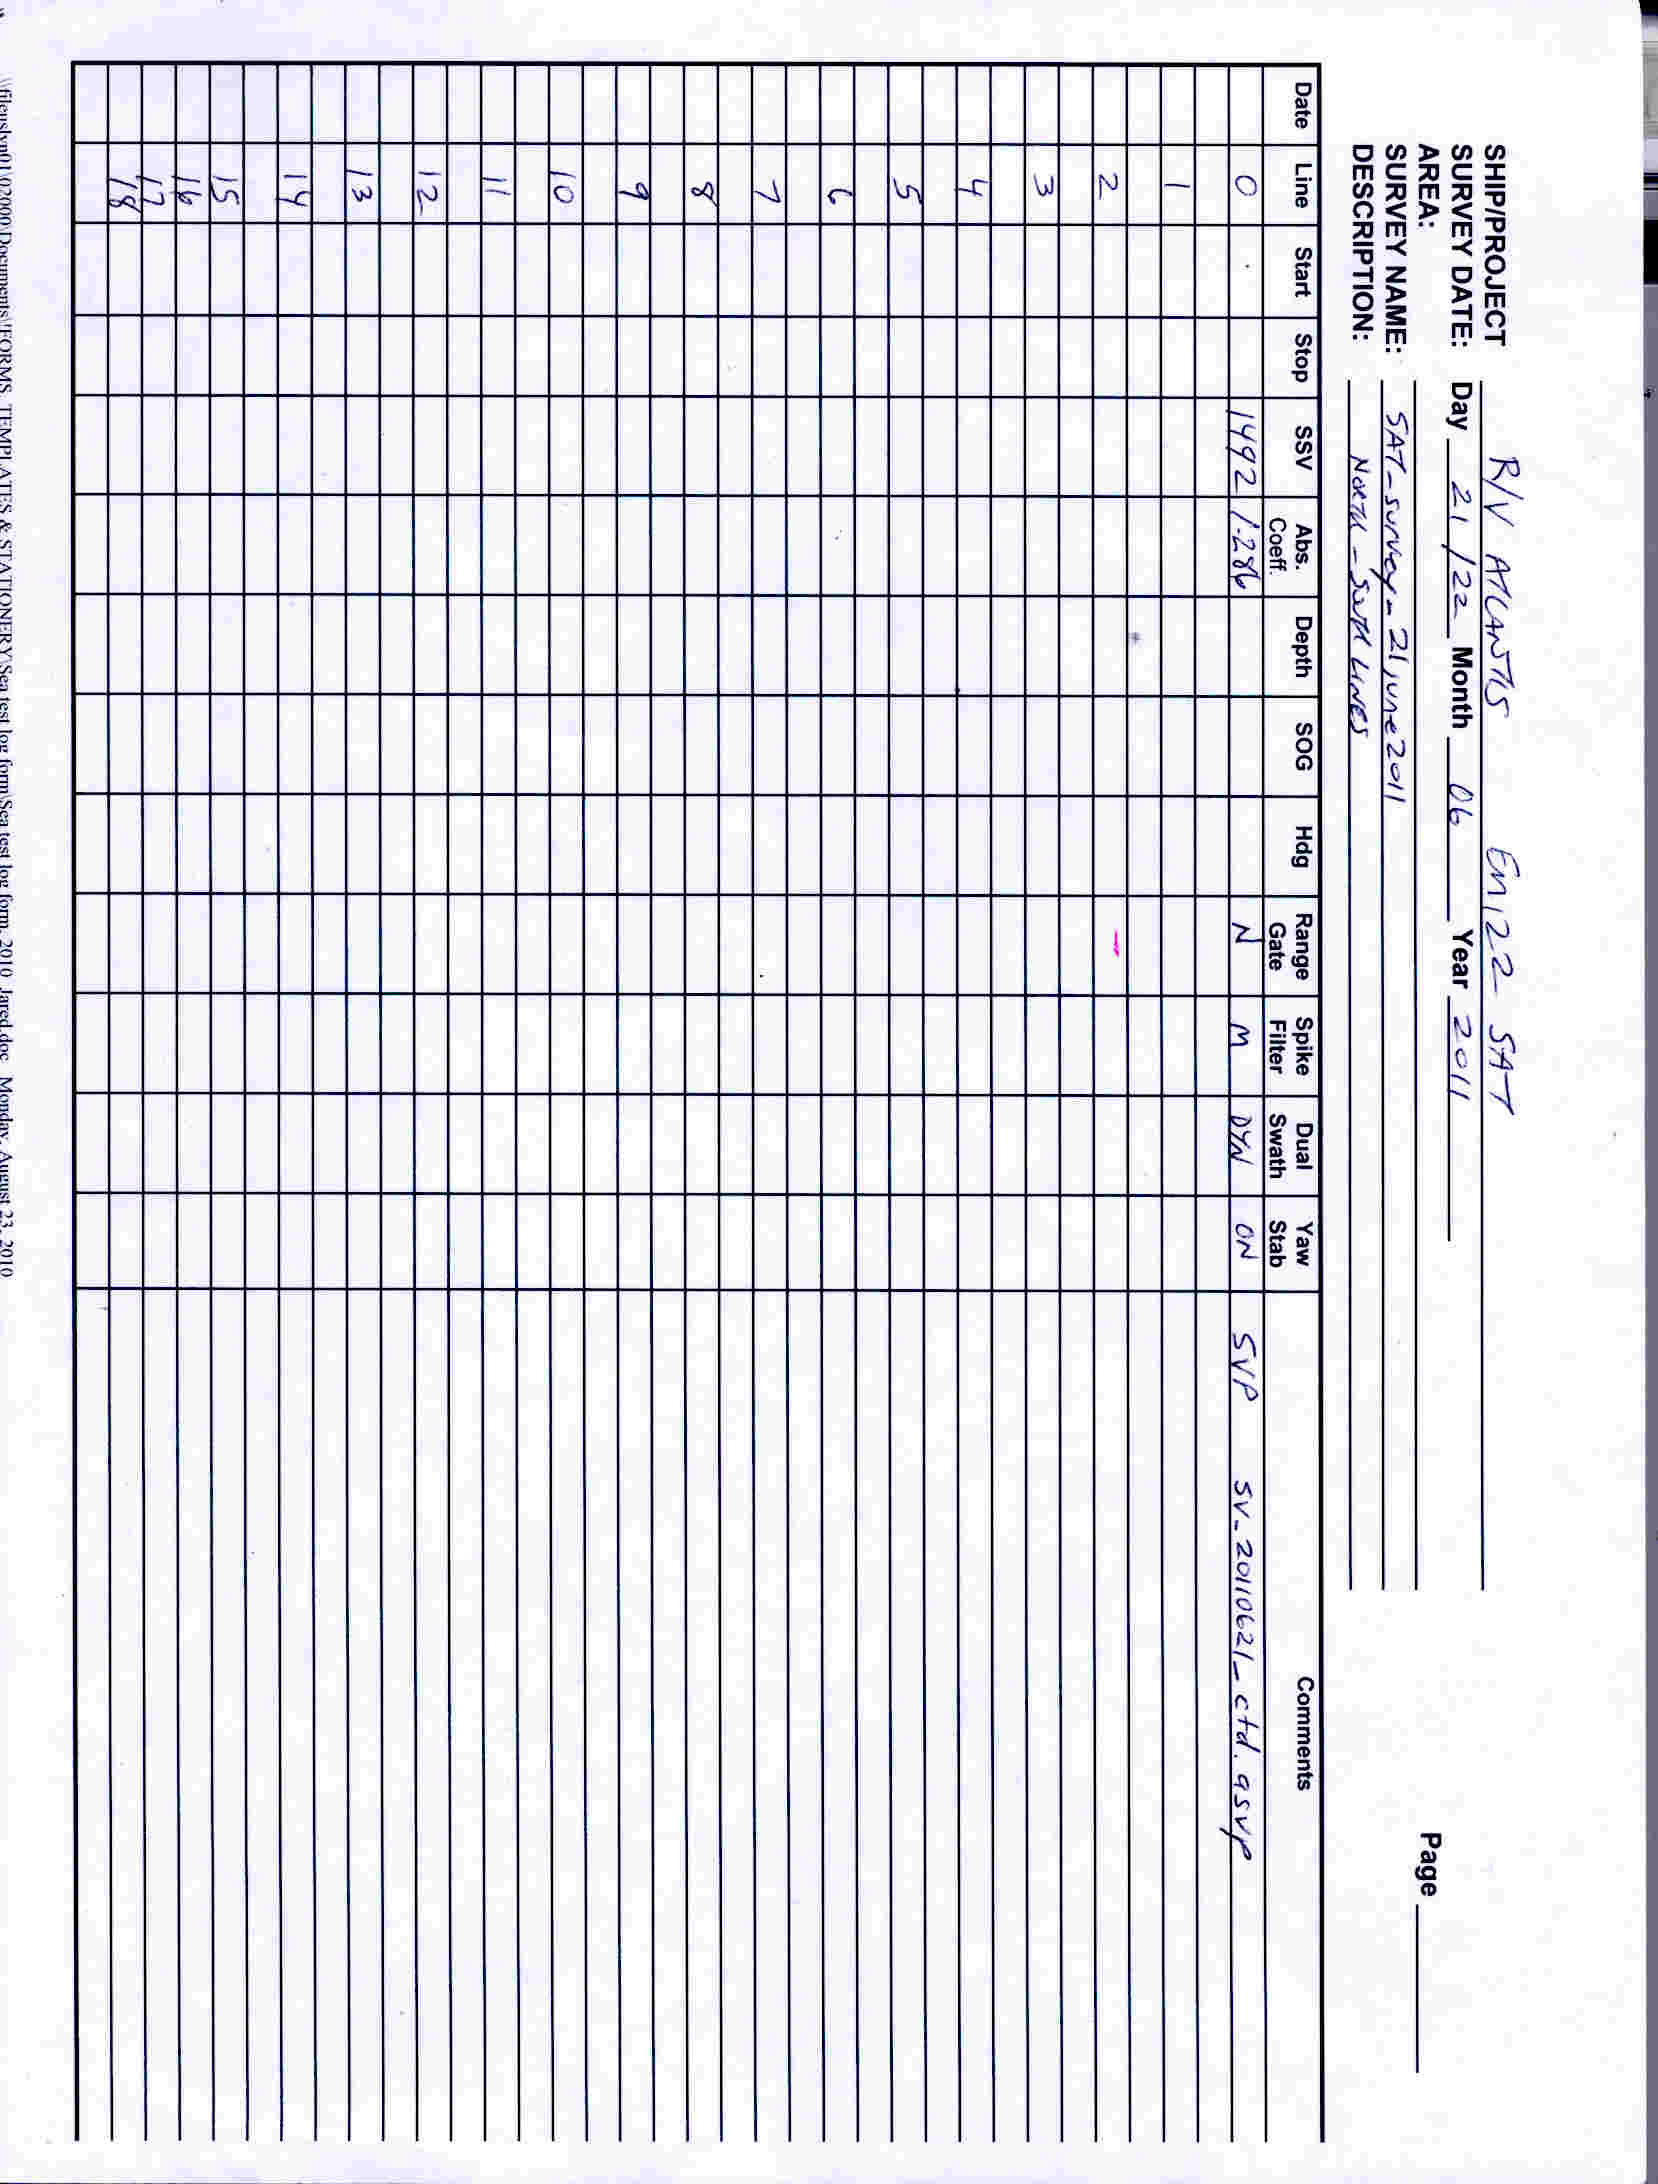 SHIP/PROJECT R/V ATLANTIS EM122 SAT
SURVEY DATE: Day 21/22 Month 06 Year 2011
AREA:
Page
SURVEY NAME: SAT_survey_21june2011
DESCRIPTION: NORTH - South LINES
Date Line Start Stop SSV Abs. Coeff. Depth SOG Hdg Range Gate Spike Filter Dual Swath Yaw Stab Comments
0 1492 1.286 N M DYN ON SVP SV_20110621_ctd.asvp
1
2
3
4
5
6
7
8
9
10
11
12
13
14
15
16
17
18
\02000\Documents\!FORMS, TEMPLATES & STATIONERY\Sea test log form\Sea test log form, 2010_Jared.doc Monday, August 23, 2010